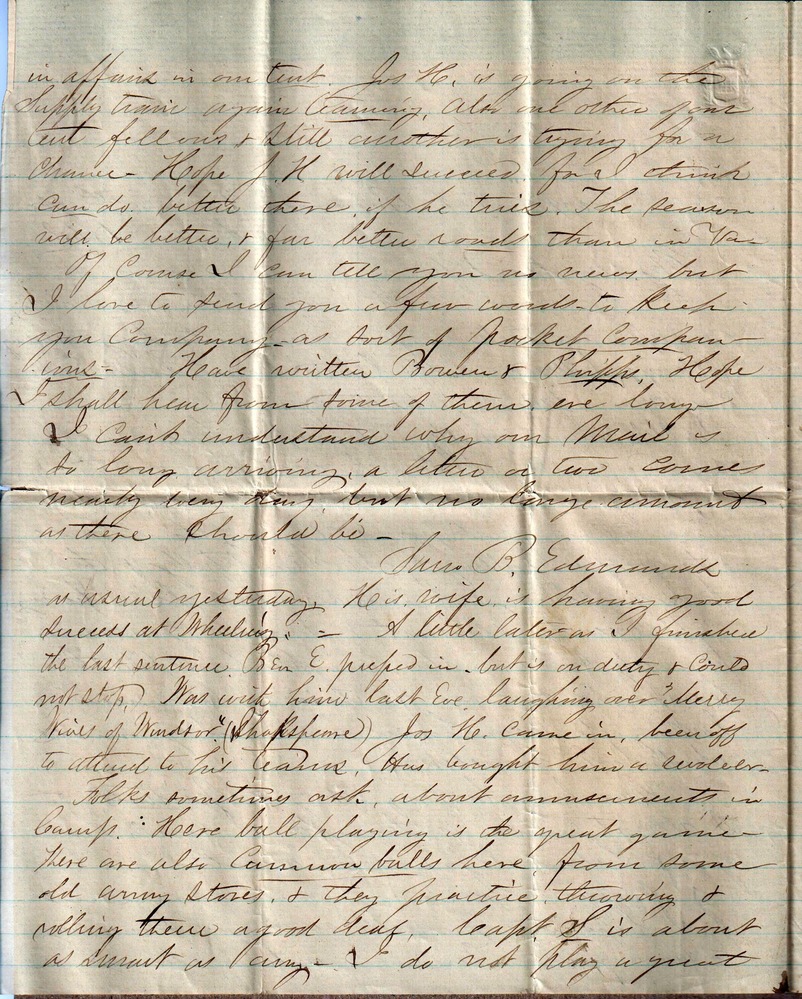 in affairs in our tent Jos H. is going on the
Supply train again teaming, also one other of our
tent fellows & still another is trying for a
chance - Hope J. H will succeed. for I think
can do better there, if he tries. The season
will be better, & far better roads than in Va -
Of Course I can tell you no news but
I love to send you a few words - to keep
you Company - as sort of pocket Compan-
ions - Have written Bowen & Phipps, Hope
I shall hear from some of them, ere long -
I cant understand why our Mail is
so long arriving, a letter or two comes
nearly every day, but no large amount
as there should be -
Saw B. Edmunds
as usual yesterday. His wife is having good
success at Wheeling. - A little later as I finished
the last sentence Ben E. peeped in - but is on duty & could
not stop) Was with him last Eve laughing over "Merry
Wives of Windsor" (Shakspeare) Jos H. came in, been off
to attend to his teams, Has bought him a revolver -
Folks sometimes ask, about amusements in
Camp. Here ball playing is a great game -
There are also Cannon balls here, from some
old army stores, & they practice, throwing &
rolling them a good deal. Capt. S is about
as smart as any - I do not play a great